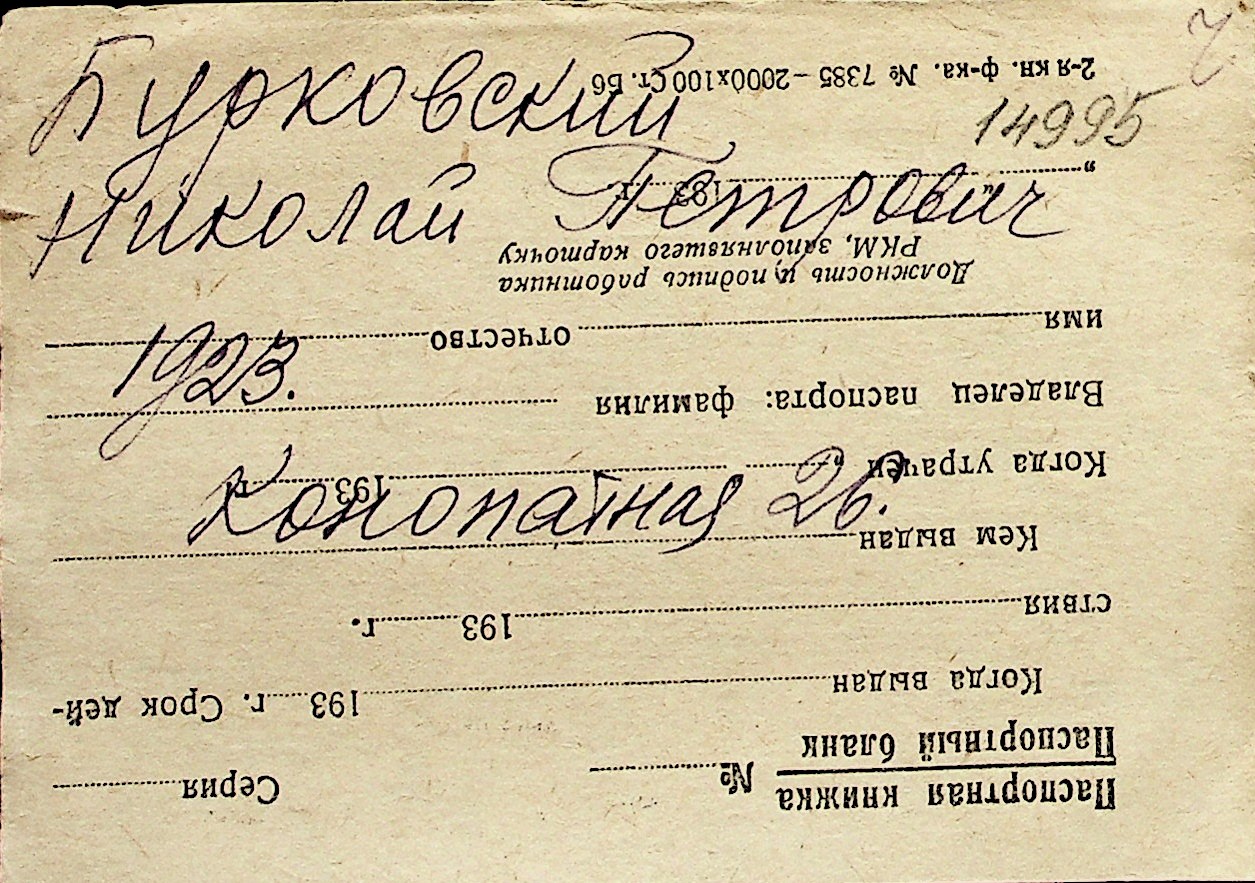 Бурковский
Николай Петрович
1923.
Конопатная 26.
14995
Паспортная книжка
Паспортный бланк
№ Серия
Когда выдан 193 г. Срок дей-
ствия 193 г.
Кем выдан
Когда утрачен „ " 193 г.
Владелец паспорта: фамилия
имя отчество
Должность и подпись работника
РКМ, заполнявшего карточку
„ " 193
2-я кн. ф-ка. № 7385 – 2000х100 Ст. Б6